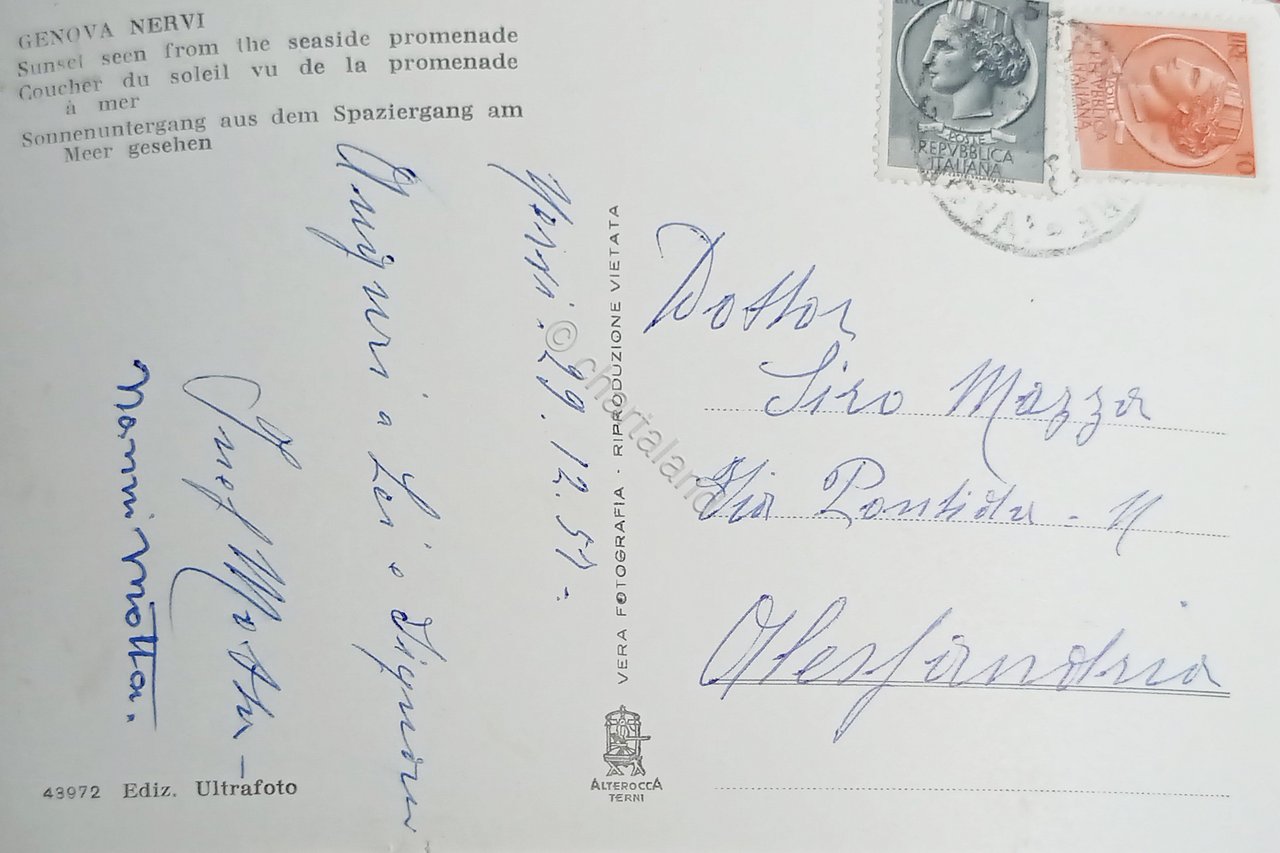 GENOVA NERVI
Sunset seen from the seaside promenade
Coucher du soleil vu de la promenade
à mer
Sonnenuntergang aus dem Spaziergang am
Meer gesehen
29.12.57
Auguri a Lei e Signora
43972 Ediz. Ultrafoto
VERA FOTOGRAFIA · RIPRODUZIONE VIETATA
ALTEROCCA
TERNI
© chartaland
LIRE 5
POSTE
REPVBBLICA
ITALIANA
LIRE 10
POSTE
REPVBBLICA
ITALIANA
Dottor
Siro Mazza
Via Pontida - 11
Alessandria